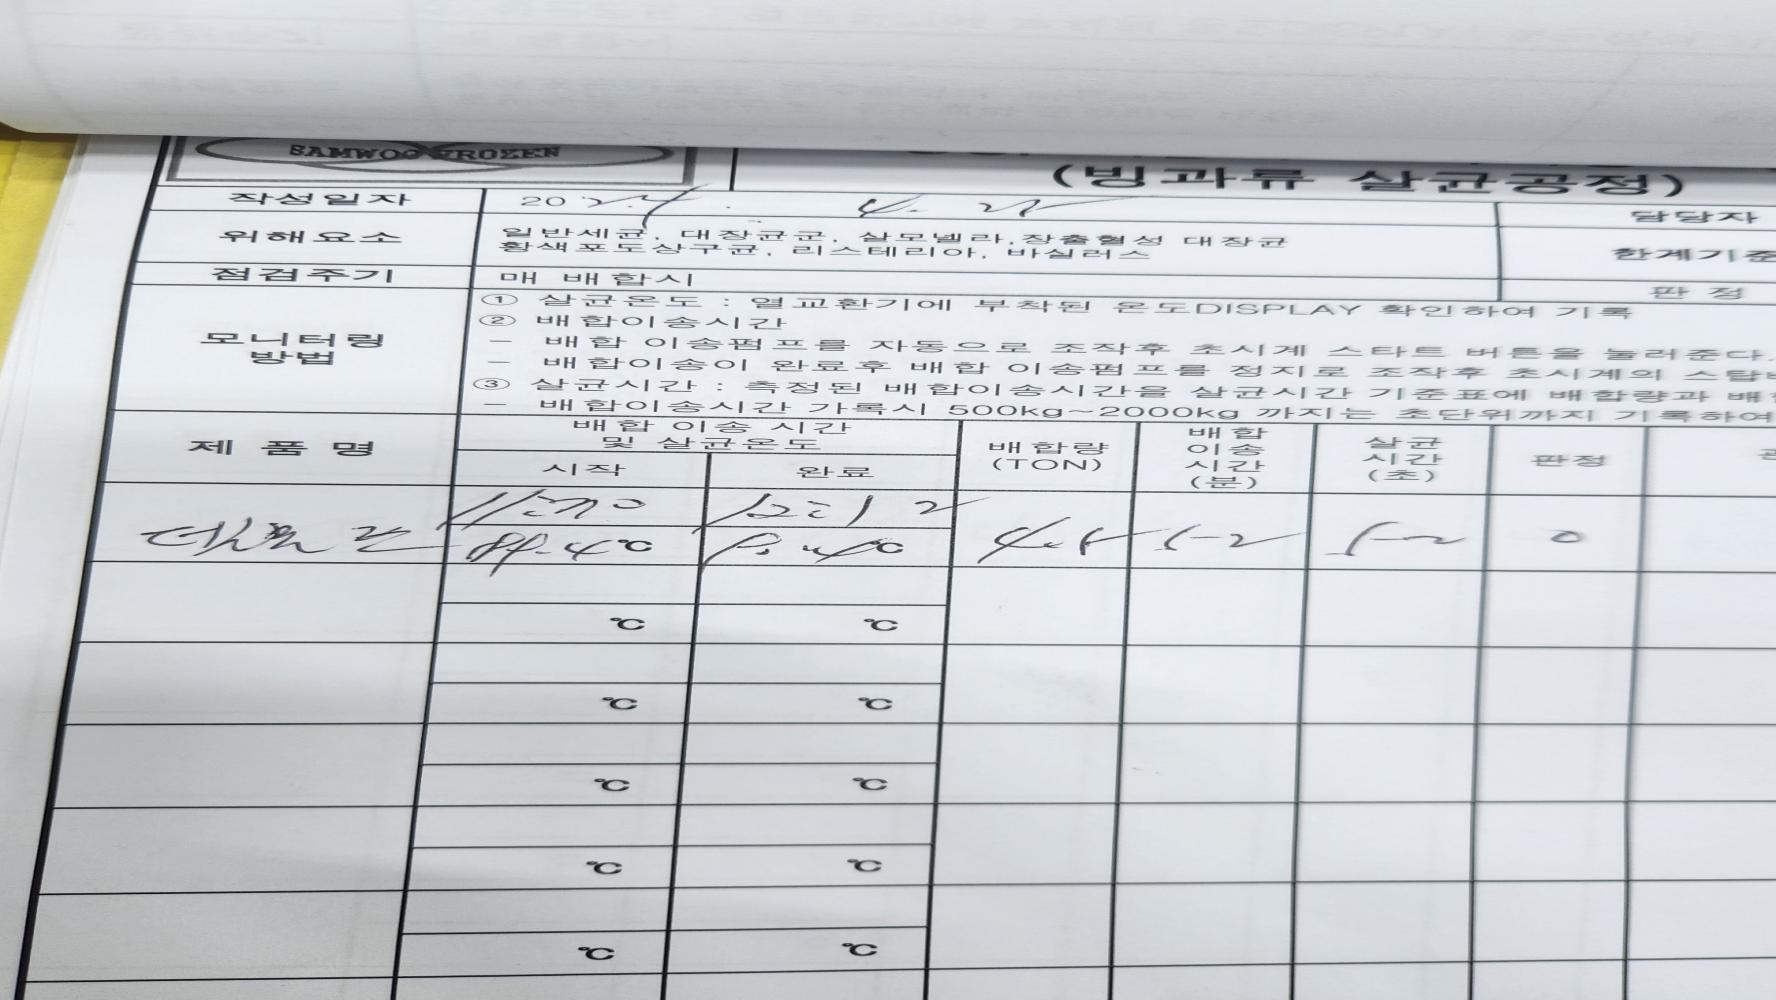 SAMWOO FROZEN
(빙과류 살균공정)
작성일자 2024. 4. 담당자
위해요소 일반세균, 대장균군, 살모넬라, 장출혈성 대장균
황색포도상구균, 리스테리아, 바실러스 한계기준
점검주기 매 배합시 판 정
모니터링
방법
① 살균온도 : 열교환기에 부착된 온도DISPLAY 확인하여 기록
② 배합이송시간
- 배합 이송펌프를 자동으로 조작후 초시계 스타트 버튼을 눌러준다.
- 배합이송이 완료후 배합 이송펌프를 정지로 조작후 초시계의 스탑
③ 살균시간 : 측정된 배합이송시간을 살균시간 기준표에 배합량과 배합
- 배합이송시간 기록시 500kg~2000kg 까지는 초단위까지 기록하여
제 품 명
배합 이송 시간
및 살균온도
시작 완료
배합량
(TON)
배합
이송
시간
(분)
살균
시간
(초)
판정
℃ ℃
52 52 0
℃ ℃
℃ ℃
℃ ℃
℃ ℃
℃ ℃